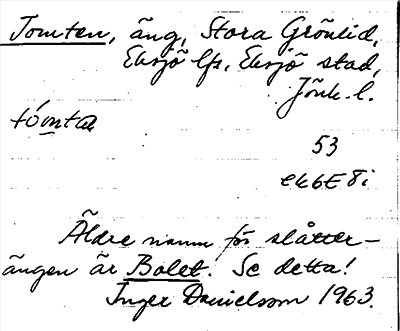 Tomten, äng, Stora Grönlid,
Eksjö lfs, Eksjö stad,
Jönk. l.
tómta
53
ek6E8i
Äldre namn för slåtter-
ängen är Bolet. Se detta!
Inger Danielsson 1963.